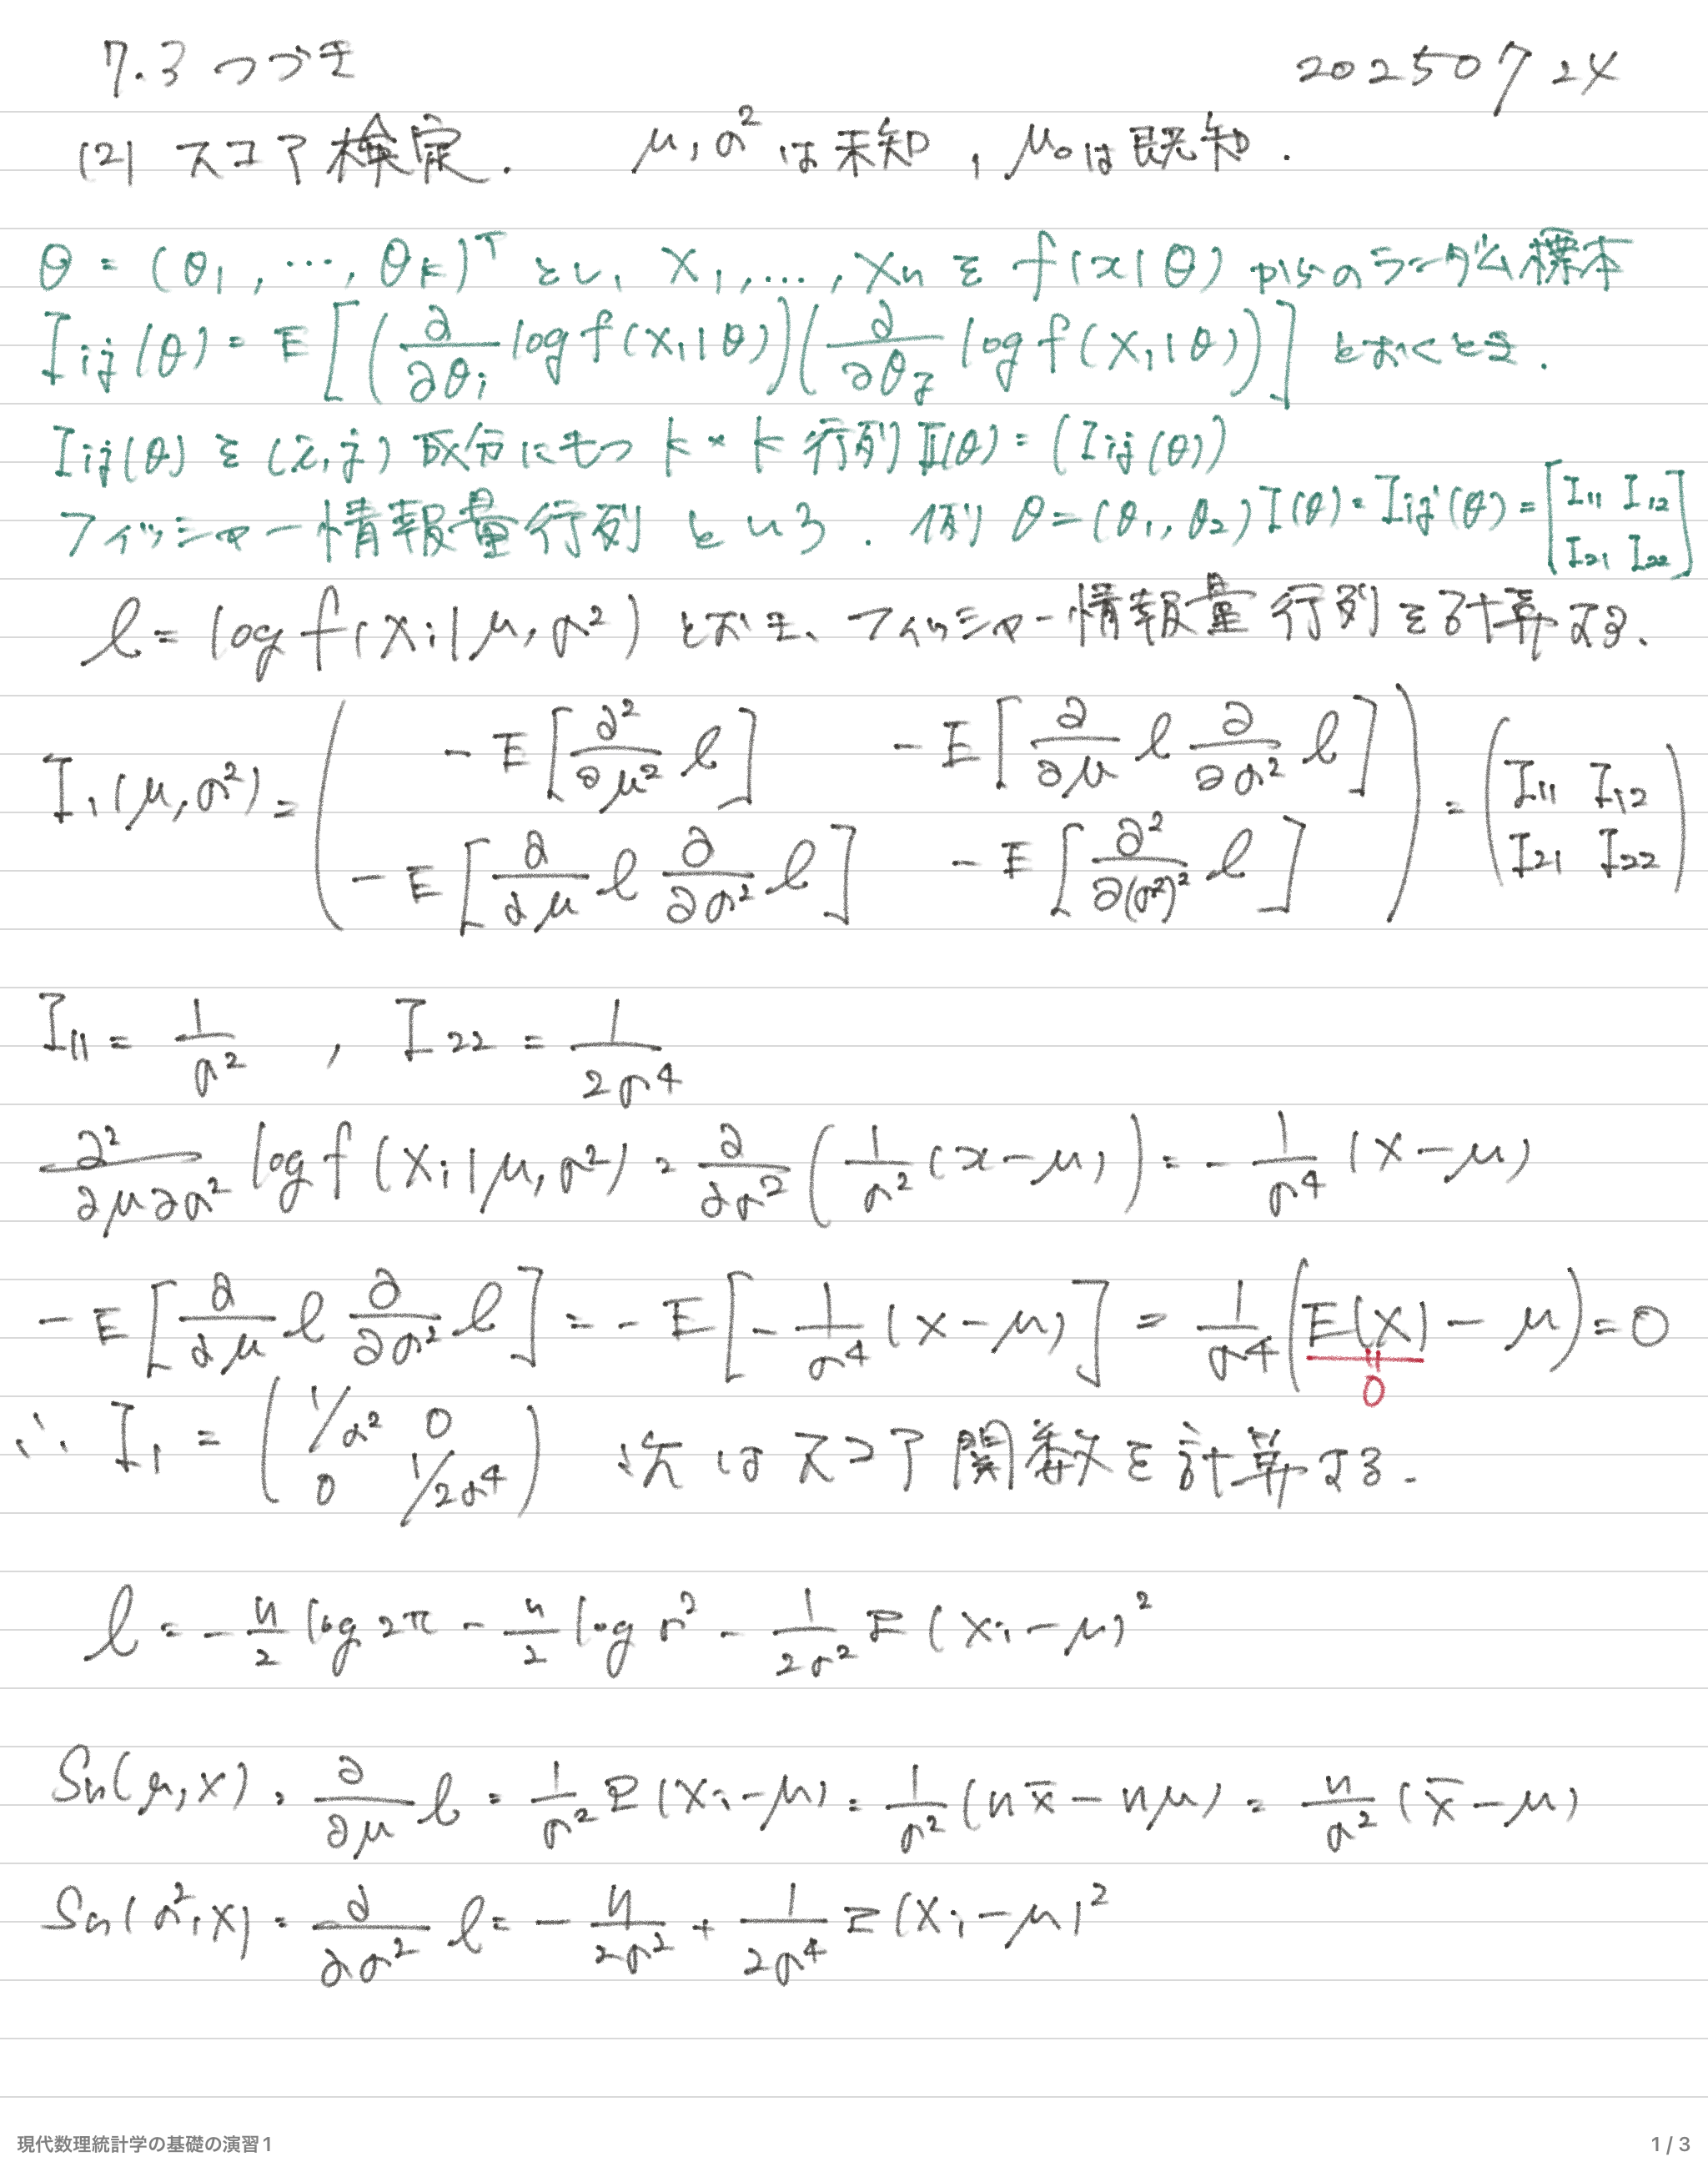 7.3 つづき 20250724
(2) スコア検定. μ, σ² は未知, μ₀は既知.
θ = (θ₁, …, θₖ)ᵀ とし, X₁, …, Xₙ を f(x|θ) からのランダム標本
Iᵢⱼ(θ) = E[(∂/∂θᵢ log f(X₁|θ))(∂/∂θⱼ log f(X₁|θ))] とおくとき.
Iᵢⱼ(θ) を (i, j) 成分にもつ k × k 行列 I(θ) = (Iᵢⱼ(θ))
フィッシャー情報量行列 という. 例 θ = (θ₁, θ₂) I(θ) = Iᵢⱼ(θ) = [I₁₁ I₁₂ I₂₁ I₂₂]
l = log f(Xᵢ|μ, σ²) とおき、フィッシャー情報量行列を計算する.
I₁(μ, σ²) = ( -E[∂²/∂μ² l] -E[∂/∂μ l ∂/∂σ² l] -E[∂/∂μ l ∂/∂σ² l] -E[∂²/∂(σ²)² l] ) = (I₁₁ I₁₂ I₂₁ I₂₂)
I₁₁ = 1/σ² , I₂₂ = 1/2σ⁴
∂²/∂μ∂σ² log f(Xᵢ|μ, σ²) = ∂/∂σ² (1/σ² (x-μ)) = -1/σ⁴ (X-μ)
-E[∂/∂μ l ∂/∂σ² l] = -E[-1/σ⁴ (X-μ)] = 1/σ⁴ (E(X) - μ) = 0
0
∴ I₁ = (1/σ² 0 0 1/2σ⁴) 次はスコア関数を計算する.
l = -n/2 log 2π - n/2 log σ² - 1/2σ² Σ(Xᵢ-μ)²
Sn(μ, X) = ∂/∂μ l = 1/σ² Σ(Xᵢ-μ) = 1/σ² (nx̄ - nμ) = n/σ² (x̄-μ)
Sn(σ², X) = ∂/∂σ² l = -n/2σ² + 1/2σ⁴ Σ(Xᵢ-μ)²
現代数理統計学の基礎の演習1 1 / 3